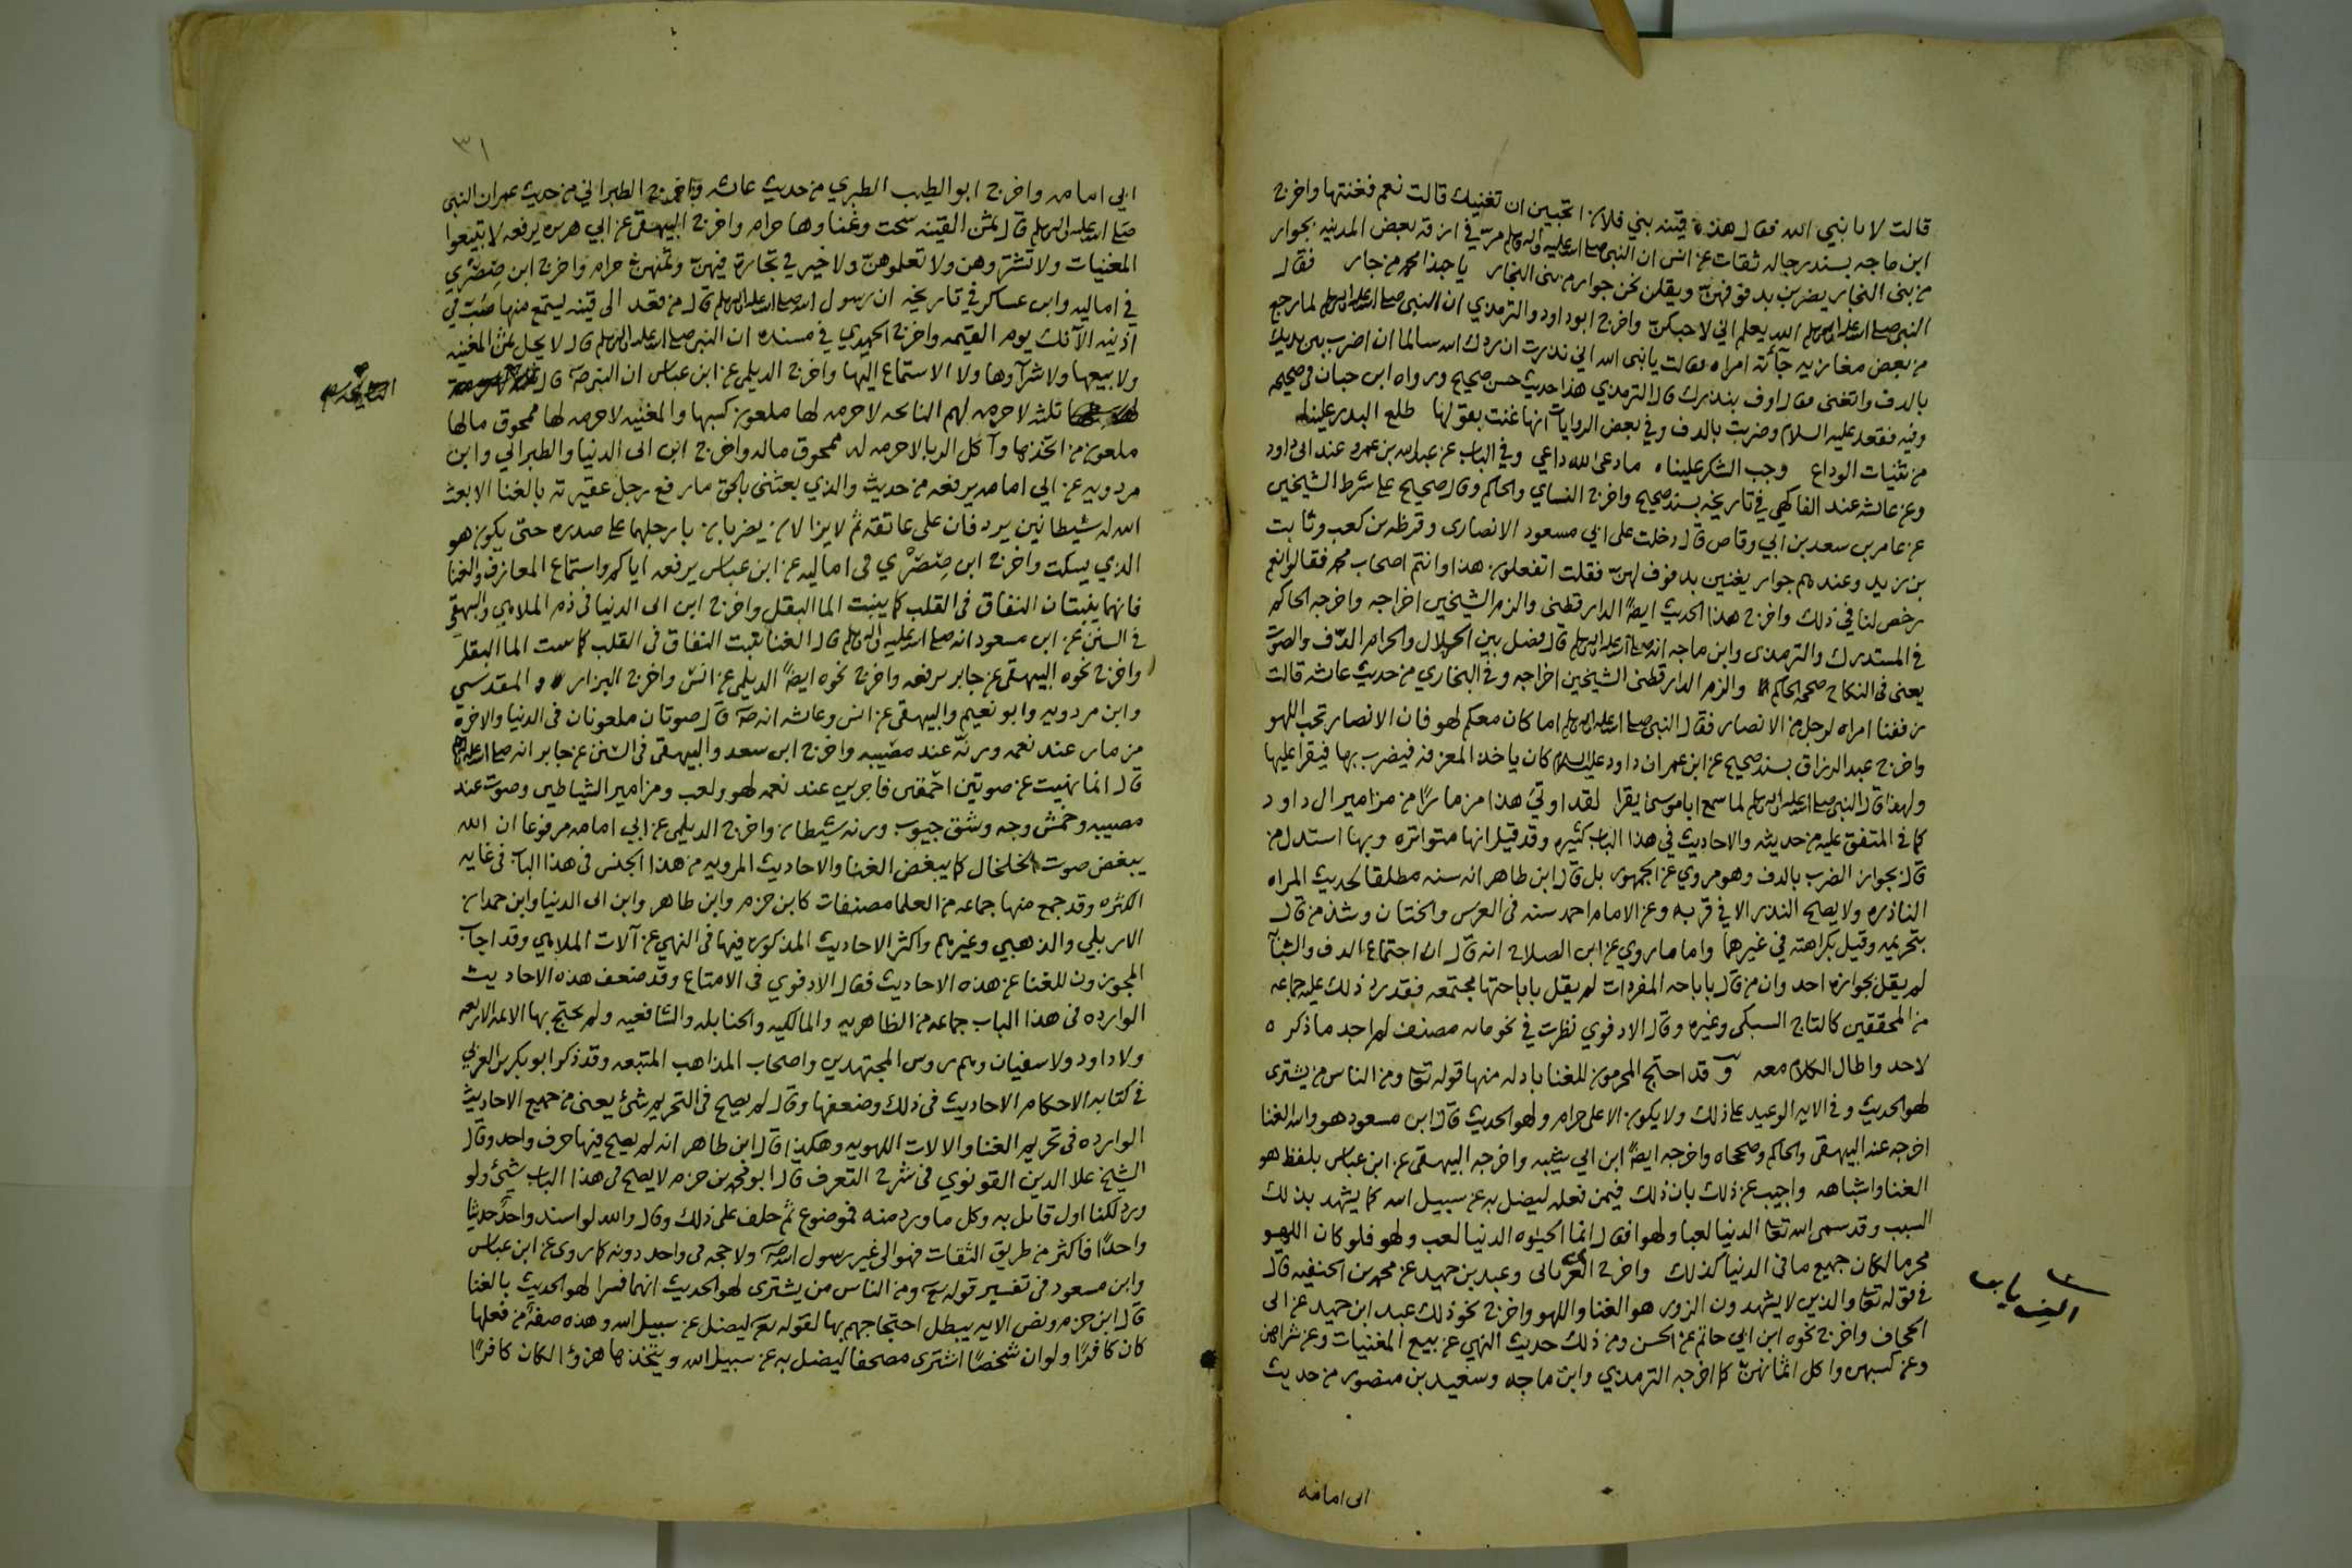 قالت لا يا نبي الله فقال هذه قينه بني فلان اتحبين ان تغنيك قالت نعم فغنتها واخرج
ابن ماجه بسند رجاله ثقات عن انس ان النبي صلى الله عليه واله وسلم مر في ازقه بعض المدينه بجوار
من بني النجار يضربن بدفوفهن ويقلن نحن جوار من بني النجار يا حبذا محمد من جار فقال
النبي صلى الله عليه واله وسلم الله يعلم اني لاحبكن واخرج ابو داود والترمذي ان النبي صلى الله عليه واله وسلم لما رجع
من بعض مغازيه جأته امراه فقالت يا نبي الله اني نذرت ان ردك الله سالما ان اضرب بين يديك
بالدف واتغنى فقال اوف بنذرك قال الترمذي هذا حديث حسن صحيح ورواه ابن حبان في صحيحه
وفيه فقعد عليه السلام وضربت بالدف وفي بعض الروايات انها غنت بقولها طلع البدر علينا
من ثنيات الوداع وجب الشكر علينا ه ما دعى لله داعي وفي الباب عن عبدالله بن عمرو عند ابي داود
وعن عائشه عند الفاكهي في تاريخه بسند صحيح واخرج النساي والحاكم وقال صحيح على شرط الشيخين
عن عامر بن سعد بن ابي وقاص قال دخلت على ابي مسعود الانصارى وقرظه بن كعب وثابت
بن زيد وعندهم جوار يغنين بدفوف لهن فقلت اتفعلون هذا وانتم اصحاب محمد فقالوا نعم
رخص لنا في ذلك واخرج هذا الحديث ايضًا الدارقطنى والزم الشيخين اخراجه واخرجه الحاكم
في المستدرك والترمذى وابن ماجه انه صلى الله عليه واله وسلم قال فصل بين الحلال والحرام الدّف والصوت
يعنى في النكاح صححه الحاكم والزم الدارقطنى الشيخين اخراجه وفي البخاري من حديث عائشه قالت
زففنا امراه لرجل من الانصار فقال النبي صلى الله عليه واله وسلم اما كان معكم لهو فان الانصار تحب اللهو
واخرج عبد الرزاق بسند صحيح عن ابن عمر ان داود عليه السلام كان ياخذ المعزفه فيضرب بها فيقرا عليها
ولهذا قال النبي صلى الله عليه واله وسلم لما سمع ابا موسى يقرا لقد اوتي هذا مزمارًا من مزامير ال داود
كما في المتفق عليه من حديثه والاحاديث في هذا الباب كثيره وقد قيل انها متواتره وبها استدل من
قال بجواز الضرب بالدف وهو مروي عن الجمهور بل قال ابن طاهر انه سنه مطلقا لحديث المراه
الناذره ولا يصح النذر الا في قربه وعن الامام احمد سنه في العرس والختان وشذ من قال
بتحريمه وقيل بكراهته في غيرهما واما ما روي عن ابن الصلاح انه قال ان اجتماع الدف والشبآ
لم يقل بجوازه احد وان من قال باباحه المفردات لم يقل باباحتها مجتمعه فقد رد ذلك عليه جماعه
من المحققين كالتاج السبكى وغيره وقال الادفوي نظرت في نحو مائه مصنف لم اجد ما ذكره
لاحد واطال الكلام معه وقد احتج المحرمون للغنا بادله منها قوله تعا ومن الناس من يشترى
لهو الحديث وفي الايه الوعيد على ذلك ولا يكون الا على حرام ولهو الحديث قال ابن مسعود هو والله الغنا
اخرجه عند البيهقى والحاكم وصححاه واخرجه ايضًا ابن ابي شيبه واخرجه البيهقى عن ابن عباس بلفظ هو
الغنا واشباهه واجيب عن ذلك بان ذلك فيمن فعله ليضل به عن سبيل الله كما يشهد بذلك
السبب وقد سمى الله تعا الدنيا لعبا ولهوا فقال انما الحيوه الدنيا لعب ولهو فلو كان اللهو
محرما لكان جميع ما في الدنيا كذلك واخرج الفريابي وعبد بن حميد عن محمد بن الحنفيه قال
في قوله تعا والذين لا يشهدون الزور هو الغنا واللهو واخرج نحو ذلك عبد ابن حميد عن ابي
الحجاف واخرج نحوه ابن ابي حاتم عن الحسن ومن ذلك حديث النهي عن بيع المغنيات وعن شرائهن
وعن كسبهن واكل اثمانهن كما اخرجه الترمذي وابن ماجه وسعيد بن منصور من حديث
ابى امامه
٣١
ابي امامه واخرج ابو الطيب الطبري من حديث عائشه واخرج الطبراني من حديث عمر ان النبي
صلى الله عليه واله وسلم قال ثمن القينه سحت وغناوها حرام واخرج البيهقى عن ابي هريره يرفعه لا تبيعوا
المغنيات ولا تشتروهن ولا تعلموهن ولا خير في تجارة فيهن وثمنهن حرام واخرج ابن صِصَرّي
في اماليه وابن عساكر في تاريخه ان رسول الله صلى الله عليه واله وسلم قال من قعد الى قينه يستمع منها صُب في
اذنيه الآنك يوم القيمه واخرج الحميدي في مسنده ان النبي صلى الله عليه واله وسلم قال لا يحل ثمن المغنيه
ولا بيعها ولا شرآوها ولا الاستماع اليها واخرج الديلمى عن ابن عباس ان النبي صلم قال
ثلثه لا حرمه لهم النائحه لا حرمه لها ملعون كسبها والمغنيه لا حرمه لها ممحوق مالها
ملعون من اتخذها وآكل الربا لا حرمه له ممحوق ماله واخرج ابن ابى الدنيا والطبراني وابن
مردويه عن ابي امامه يرفعه من حديث والذي بعثنى بالحق ما رفع رجل عقيرته بالغنا الا بعث
الله له شيطانين يردفان على عاتقه ثم لا يزالان يضربان بارجلهما على صدره حتى يكون هو
الذي يسكت واخرج ابن صِصَرّي في اماليه عن ابن عباس يرفعه اياكم واستماع المعازف والغنا
فانهما ينبتان النفاق في القلب كما ينبت الما البقل واخرج ابن ابى الدنيا في ذم الملاهي والبيهقى
في السنن عن ابن مسعود انه صلى الله عليه واله وسلم قال الغنا ينبت النفاق في القلب كما ينبت الما البقل
واخرج نحوه البيهقى عن جابر يرفعه واخرج نحوه ايضًا الديلمى عن انس واخرج البزار والمقدسي
وابن مردويه وابو نعيم والبيهقى عن انس وعائشه انه صلم قال صوتان ملعونان في الدنيا والاخرة
مزمار عند نعمه ورنّه عند مصيبه واخرج ابن سعد والبيهقى في السنن عن جابر انه صلى الله عليه واله
قال انما نهيت عن صوتين احمقين فاجرين عند نغمه لهو ولعب ومزامير الشياطين وصوت عند
مصيبه وخمش وجه وشق جيوب ورنه شيطان واخرج الديلمى عن ابي امامه مرفوعا ان الله
يبغض صوت الخلخال كما يبغض الغنا والاحاديث المرويه من هذا الجنس في هذا الباب في غايه
الكثره وقد جمع منها جماعه من العلما مصنفات كابن حزم وابن طاهر وابن ابى الدنيا وابن حمدان
الاربلي والذهبي وغيرهم واكثر الاحاديث المذكوره فيها في النهي عن آلات الملاهي وقد اجاب
المجوزون للغنا عن هذه الاحاديث فقال الادفوي في الامتاع وقد ضعف هذه الاحاديث
الوارده في هذا الباب جماعه من الظاهريه والمالكيه والحنابله والشافعيه ولم يحتج بها الائمه الاربعه
ولا داود ولا سفيان وهم روس المجتهدين واصحاب المذاهب المتبعه وقد ذكر ابو بكر بن العربي
في كتابه الاحكام الاحاديث في ذلك وضعفها وقال لم يصح في التحريم شئ يعنى من جميع الاحاديث
الوارده في تحريم الغنا والالات اللهويه وهكذا قال ابن طاهر انه لم يصح فيها حرف واحد وقال
الشيخ علا الدين القونوي في شرح التعرف قال ابو محمد بن حزم لا يصح في هذا الباب شئ ولو
ورد لكنا اول قائل به وكل ما ورد منه فموضوع ثم حلف على ذلك وقال والله لو اسند واحدٌ حديثا
واحدًا فاكثر من طريق الثقات فهو الى غير رسول الله صلم ولا حجه في واحد دونه كما روى عن ابن عباس
وابن مسعود في تفسير قوله تع ومن الناس من يشترى لهو الحديث انهما فسرا لهو الحديث بالغنا
قال ابن حزم ونص الايه يبطل احتجاجهم بها لقوله تع ليضل عن سبيل الله وهذه صفة من فعلها
كان كافرًا ولو ان شخصًا اشترى مصحفا ليضل به عن سبيل الله ويتخذها هزوًا لكان كافرًا